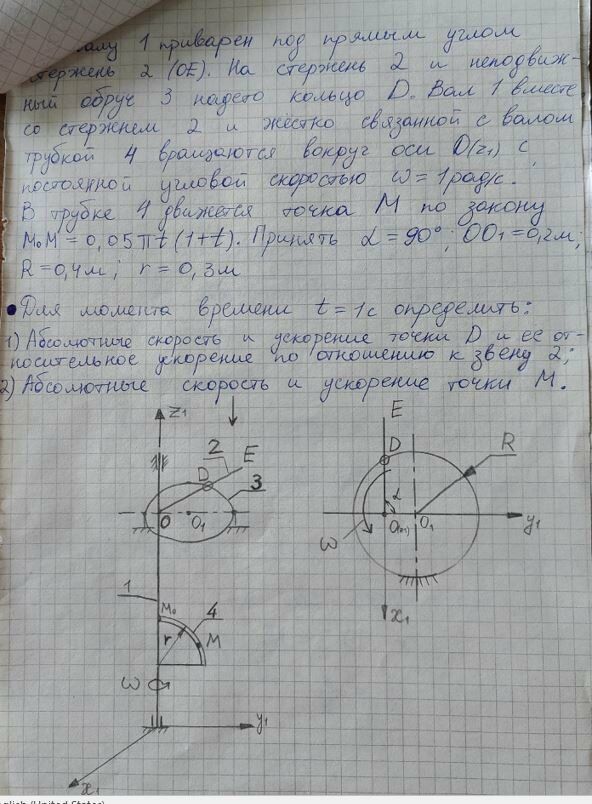 валу 1 приварен под прямым углом
стержень 2 (OE). На стержень 2 и неподвиж-
ный обруч 3 надето кольцо D. Вал 1 вместе
со стержнем 2 и жёстко связанной с валом
трубкой 4 вращаются вокруг оси O(z₁) с
постоянной угловой скоростью ω = 1 рад/с.
В трубке 4 движется точка M по закону
M₀M = 0,05πt(1+t). Принять α = 90°; OO₁ = 0,2м;
R = 0,4м; r = 0,3м
• Для момента времени t = 1с определить:
1) Абсолютные скорость и ускорение точки D и ее от-
носительное ускорение по отношению к звену 2;
2) Абсолютные скорость и ускорение точки M.
z₁
2
E
D
3
O
O₁
1
M₀
4
r
M
ω
y₁
x₁
E
D
R
α
O(z₁)
O₁
y₁
ω
x₁
nglish (United States)